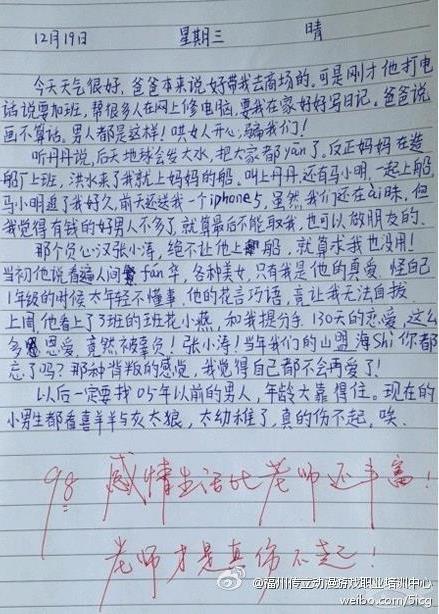 12月19日 星期三 晴
今天天气很好，爸爸本来说好带我去商场的。可是刚才他打电
话说要加班，帮很多人在网上修电脑，要我在家好好写日记。爸爸说
画不算话。男人都是这样！哄女人开心，骗我们！
听丹丹说，后天地球会发大水，把大家都yān了。反正妈妈在造
船厂上班，洪水来了我就上妈妈的船。叫上丹丹还有马小明一起上船，
马小明追了我好久，前天还送我一个iphone5，虽然我们还在ài昧，但
我觉得有钱的好男人不多了，就算最后不能取我，也可以做朋友的。
那个负心汉张小涛，绝不让他上船，就算求我也没用！
当初他说看遍人间fán华，各种美女，只有我是他的真爱。怪自己
1年级的时候太年轻不懂事，他的花言巧语，竟让我无法自拔。
上周，他看上了3班的班花小燕，和我提分手。130天的恋爱，这么
多恩爱，竟然被辜负！张小涛！当年我们的山盟海Shì你都
忘了吗？那种背叛的感觉，我觉得自己都不会再爱了！
以后一定要找05年以前的男人，年龄大靠得住。现在的
小男生都看喜羊羊与灰太狼，太幼稚了，真的伤不起，唉。
98 感情生活比老师还丰富！
老师才是真伤不起！
@福州传立动漫游戏职业培训中心
weibo.com/5icg